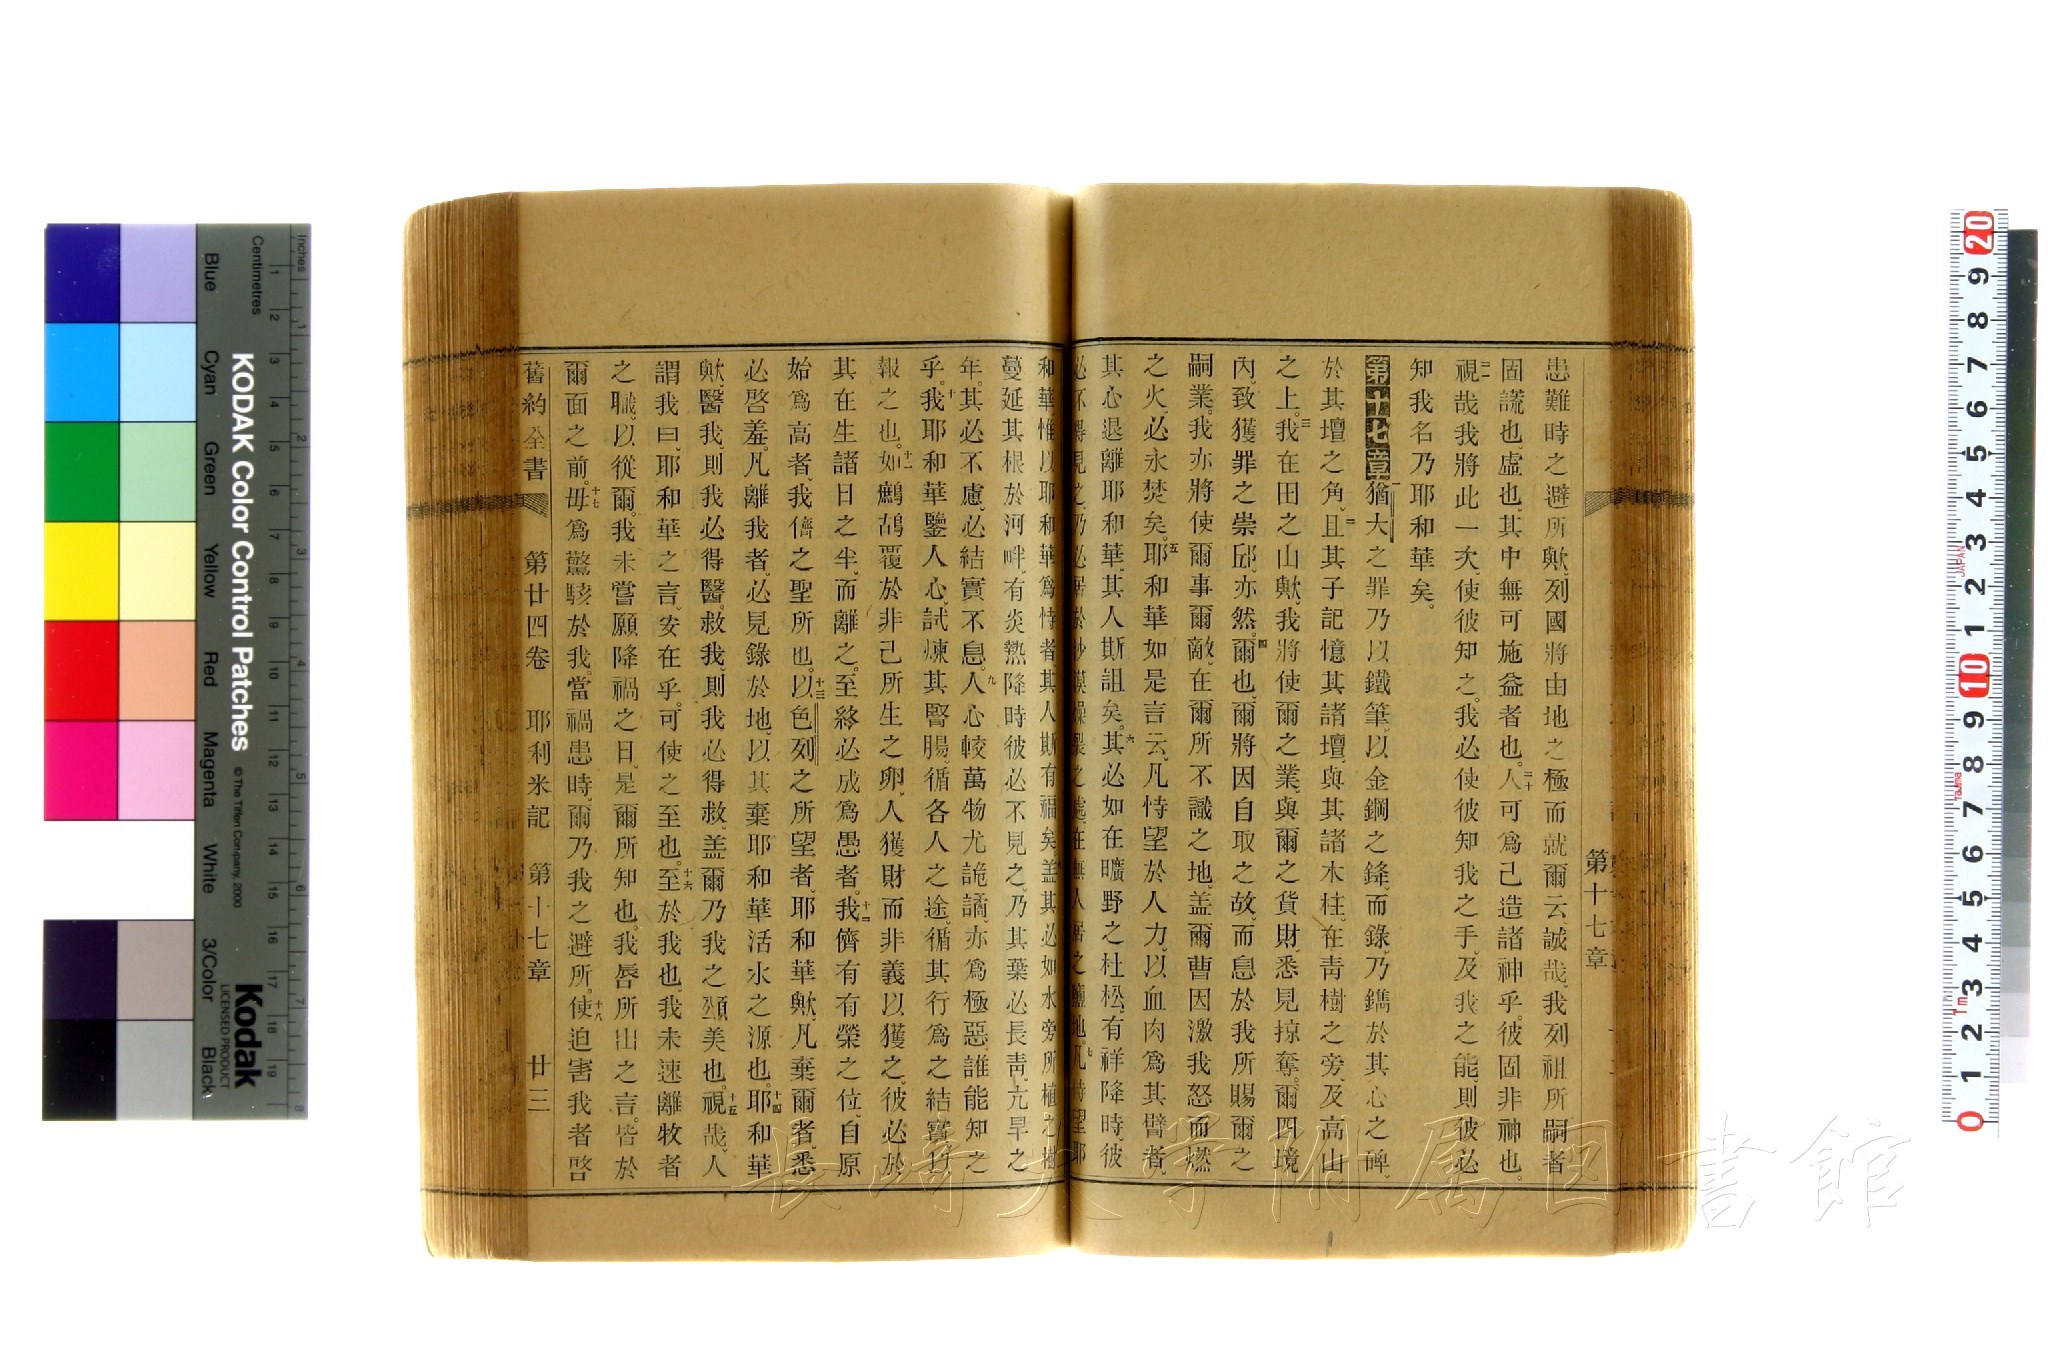 第十七章
患難時之避所歟、列國將由地之極而就爾云、誠哉、我列祖所嗣者
固謊也、虛也、其中無可施益者也。二十人可爲己造諸神乎。彼固非神也。
二一視哉、我將此一次、使彼知之、我必使彼知我之手、及我之能、則彼必
知我名乃耶和華矣。
第十七章一猶大之罪、乃以鐵筆、以金鋼之鋒、而錄、乃鐫於其心之碑、
於其壇之角、二且其子記憶其諸壇、與其諸木柱、在靑樹之旁、及高山
之上。三我在田之山歟、我將使爾之業、與爾之貨財、悉見掠奪。爾四境
內、致獲罪之崇邱、亦然。四爾也、爾將因自取之故、而息於我所賜爾之
嗣業。我亦將使爾事爾敵、在爾所不識之地。盖爾曹因激我怒而燃
之火、必永焚矣。五耶和華如是言云、凡恃望於人力、以血肉爲其臂者、
其心退離耶和華、其人斯詛矣。六其必如在曠野之杜松、有祥降時、彼
必不得見之、乃必居於沙漠燥裂之處、在無人居之鹽地。七凡恃望耶
和華、惟以耶和華爲恃者、其人斯有福矣。盖其必如水旁所植之樹、
蔓延其根於河畔、有炎熱降時、彼必不見之、乃其葉必長靑、亢旱之
年。其必不慮、必結實不息。九人心較萬物尤詭譎、亦爲極惡、誰能知之
乎。十我耶和華鑒人心、試煉其腎腸、循各人之途、循其行爲之結實以
報之也。十一如鷓鴣覆於非己所生之卵、人獲財而非義以獲之、彼必於
其在生諸日之半、而離之。至終必成爲愚者。十二我儕有有榮之位、自原
始爲高者、我儕之聖所也。十三以色列之所望者、耶和華歟、凡棄爾者、悉
必啓羞。凡離我者、必見錄於地、以其棄耶和華活水之源也。十四耶和華
歟、醫我、則我必得醫。救我、則我必得救。盖爾乃我之頌美也。十五視哉、人
謂我曰、耶和華之言、安在乎。可使之至也。十六至於我也、我未速離牧者
之職、以從爾。我未嘗願降禍之日、是爾所知也。我唇所出之言。皆於
爾面之前。十七毋爲驚駭於我。當禍患時、爾乃我之避所。十八使迫害我者啓
舊約全書 第廿四卷 耶利米記 第十七章 廿三
長崎大学附属図書館
KODAK Color Control Patches
© The Tiffen Company, 2000
Kodak
LICENSED PRODUCT
Inches
Centimetres
Blue
Cyan
Green
Yellow
Red
Magenta
White
3/Color
Black